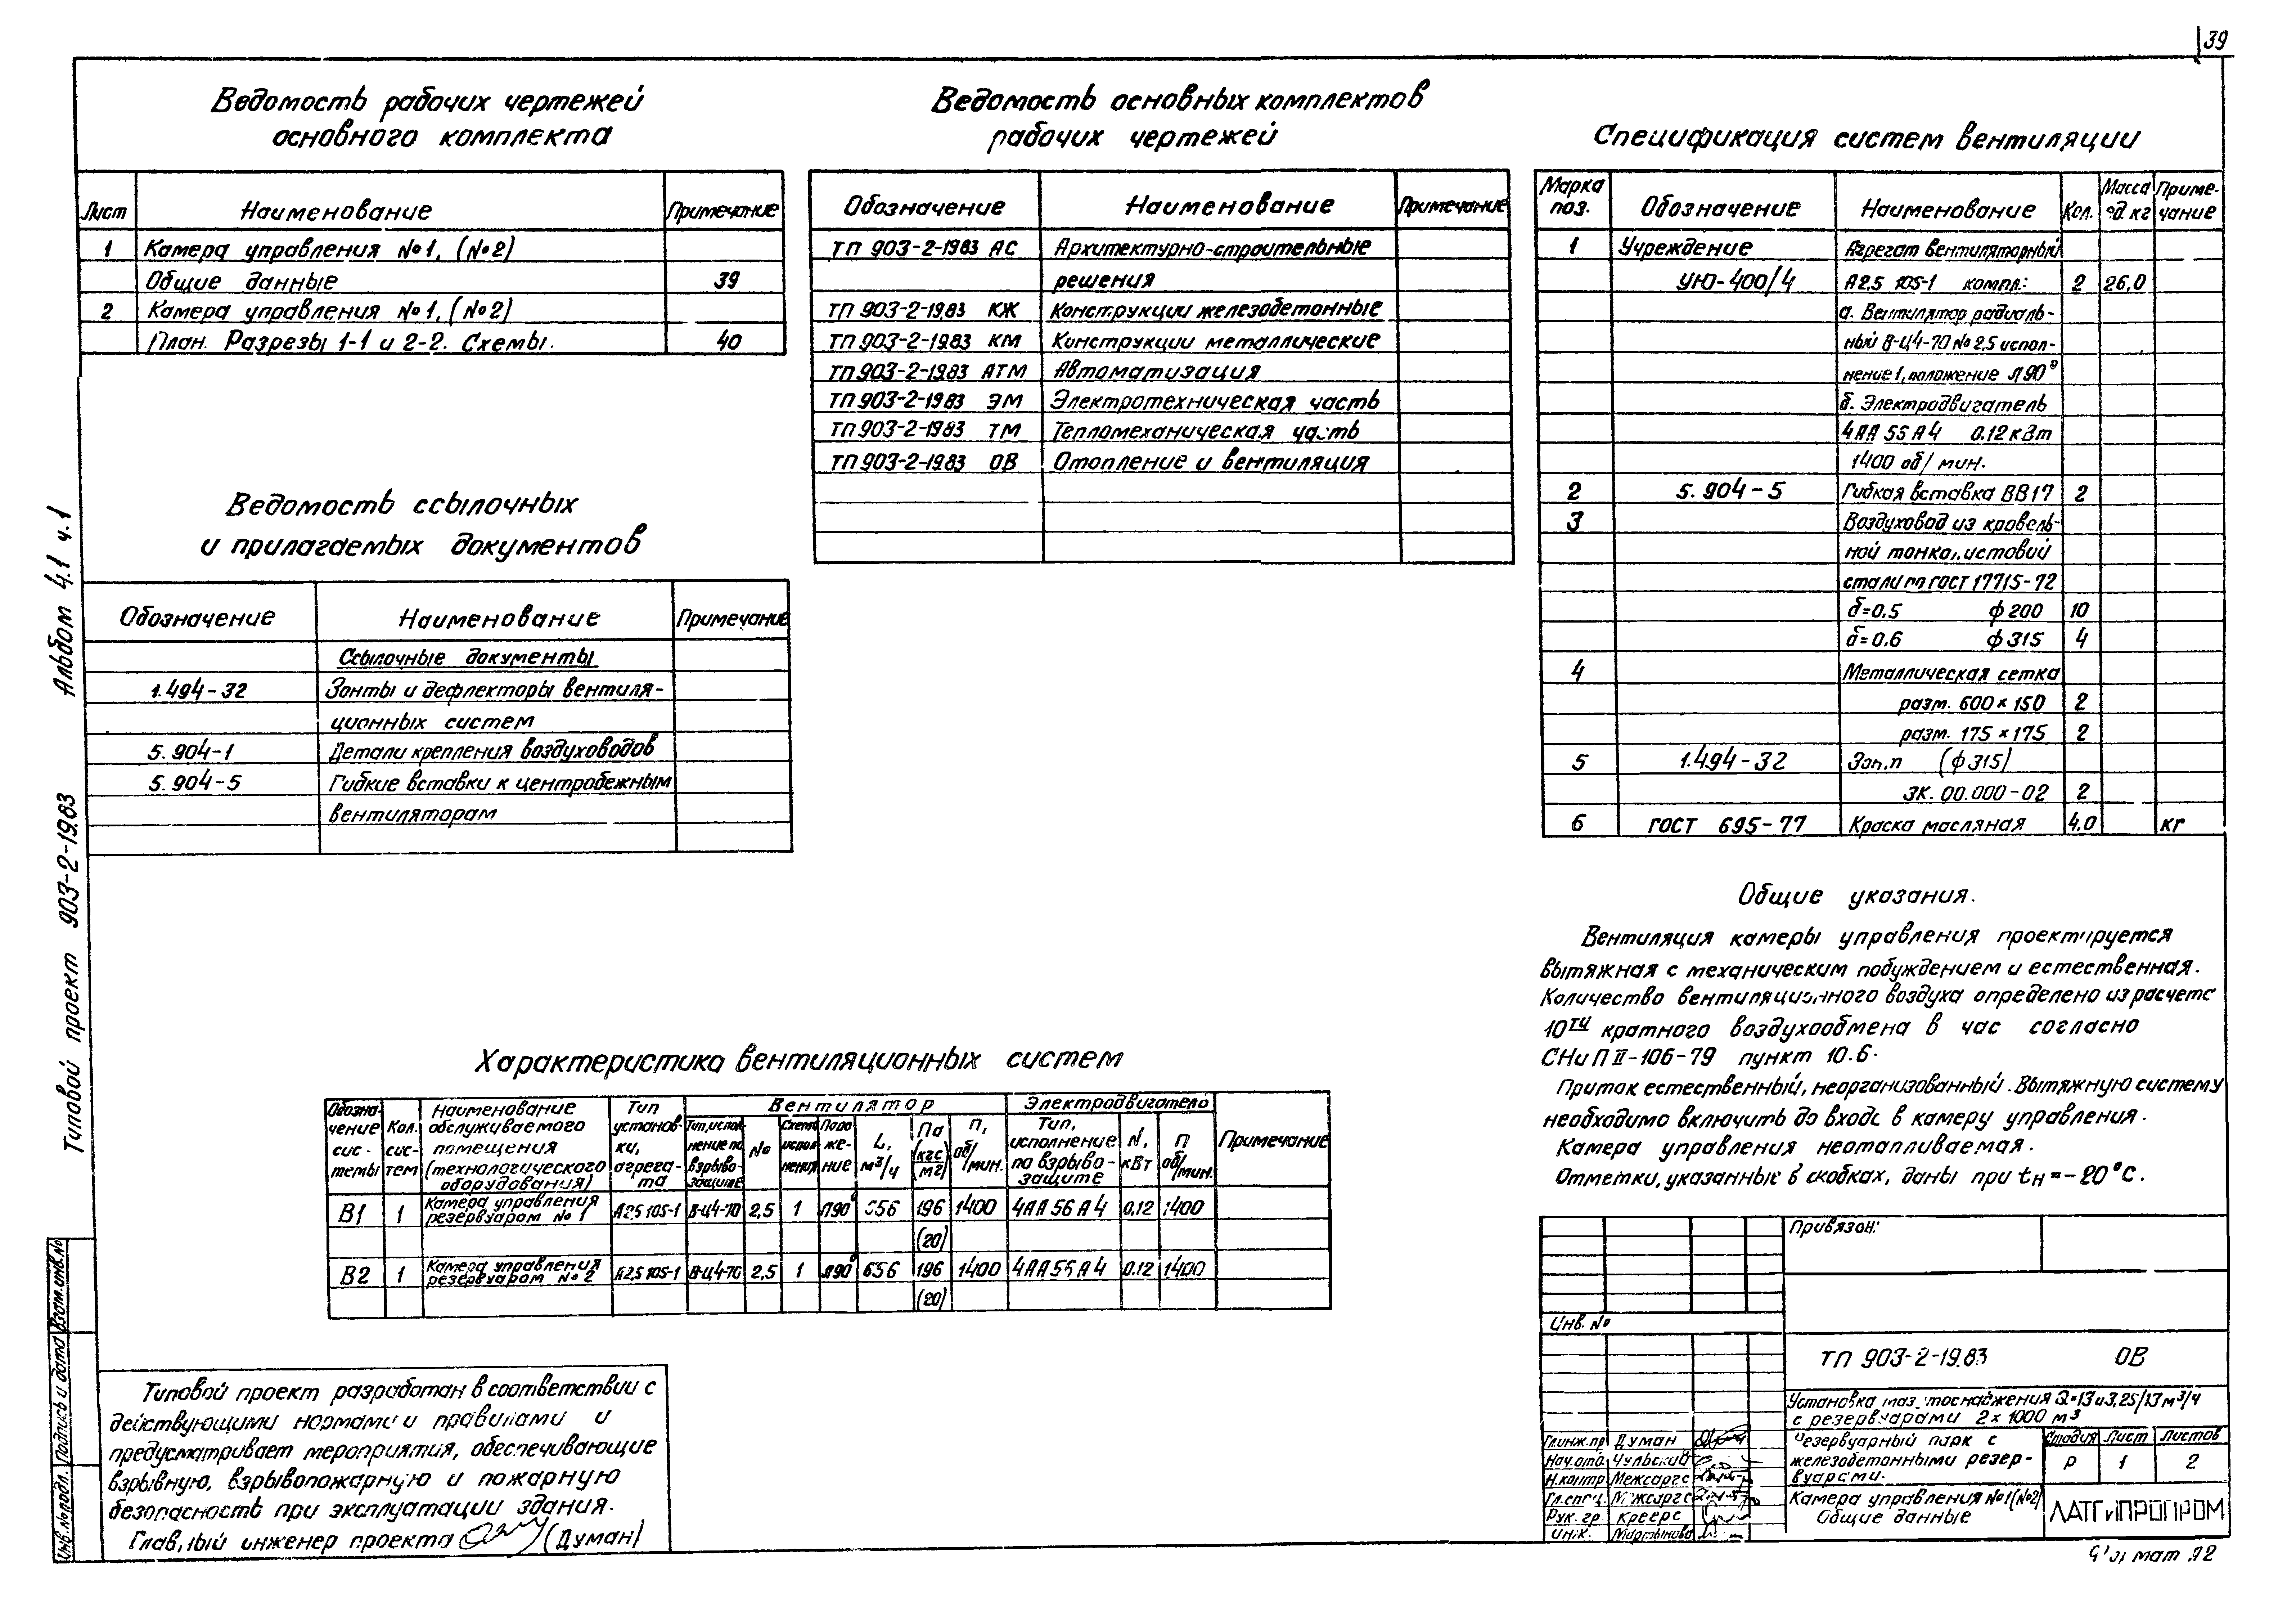 39
Ведомость рабочих чертежей
основного комплекта
Лист Наименование Примечание
1 Камера управления №1, (№2)
Общие данные 39
2 Камера управления №1, (№2)
План. Разрезы 1-1 и 2-2. Схемы. 40
Ведомость ссылочных
и прилагаемых документов
Обозначение Наименование Примечание
Ссылочные документы
1.494-32 Зонты и дефлекторы вентиля-
ционных систем
5.904-1 Детали крепления воздуховодов
5.904-5 Гибкие вставки к центробежным
вентиляторам
Ведомость основных комплектов
рабочих чертежей
Обозначение Наименование Примечание
ТП 903-2-19.83 АС Архитектурно-строительные
решения
ТП 903-2-19.83 КЖ Конструкции железобетонные
ТП 903-2-19.83 КМ Конструкции металлические
ТП 903-2-19.83 АТМ Автоматизация
ТП 903-2-19.83 ЭМ Электротехническая часть
ТП 903-2-19.83 ТМ Тепломеханическая часть
ТП 903-2-19.83 ОВ Отопление и вентиляция
Спецификация систем вентиляции
Марка поз. Обозначение Наименование Кол. Масса ед. кг Приме-чание
1 Учреждение Агрегат вентиляторный
УЮ-400/4 А2,5 105-1 компл.: 2 26,0
а. Вентилятор радиаль-
ный В-Ц4-70 №2,5 испол-
нение 1, положение Л90°
б. Электродвигатель
4АА 56 А4 0.12 кВт
1400 об/мин.
2 5.904-5 Гибкая вставка ВВ17 2
3 Воздуховод из кровель-
ной тонколистовой
стали по ГОСТ 17715-72
δ=0.5 ф200 10
δ=0.6 ф315 4
4 Металлическая сетка
разм. 600×150 2
разм. 175×175 2
5 1.494-32 Зонт (ф315)
ЗК.00.000-02 2
6 ГОСТ 695-77 Краска масляная 4,0 кг
Общие указания.
Вентиляция камеры управления проектируется
вытяжная с механическим побуждением и естественная.
Количество вентиляционного воздуха определено из расчета
10ти кратного воздухообмена в час согласно
СНиП II-106-79 пункт 10.6.
Приток естественный, неорганизованный. Вытяжную систему
необходимо включить до входа в камеру управления.
Камера управления неотапливаемая.
Отметки, указанные в скобках, даны при tн=-20°С.
Характеристика вентиляционных систем
Обозна-чение сис-темы Кол. сис-тем Наименование обслуживаемого помещения (технологического оборудования) Тип установ-ки, агрега-та Вентилятор Электродвигатель Примечание
Тип, испол-нение по взрыво-защите № Схема испол-нения Поло-же-ние L, м³/ч Па (кгс/м2) n, об/мин. Тип, исполнение по взрыво-защите N, кВт n об/мин.
В1 1 Камера управления резервуаром №1 А2,5 105-1 В-Ц4-70 2,5 1 Л90° 656 196 1400 4АА 56 А4 0.12 1400
(20)
В2 1 Камера управления резервуаром №2 А2,5 105-1 В-Ц4-70 2,5 1 Л90° 656 196 1400 4АА 56 А4 0.12 1400
(20)
Типовой проект разработан в соответствии с
действующими нормами и правилами и
предусматривает мероприятия, обеспечивающие
взрывную, взрывопожарную и пожарную
безопасность при эксплуатации здания.
Главный инженер проекта (Думан)
Типовой проект 903-2-19.83 Альбом 4.1 ч.1
Инв.№подл. Подпись и дата Взам.инв.№
Привязан:
Инв. №
ТП 903-2-19.83 ОВ
Установка мазутоснабжения Q=13 и 3,25/13 м³/ч
с резервуарами 2×1000 м³
Гл.инж.пр Думан
Нач.отд. Чульский
Н.контр Межсаргс
Гл.спец. Межсаргс
Рук.гр. Креерс
Инж. Мартынова
Резервуарный парк с
железобетонными резер-
вуарами.
Стадия Лист Листов
Р 1 2
Камера управления №1(№2)
Общие данные
ЛАТГИПРОПРОМ
Формат А2